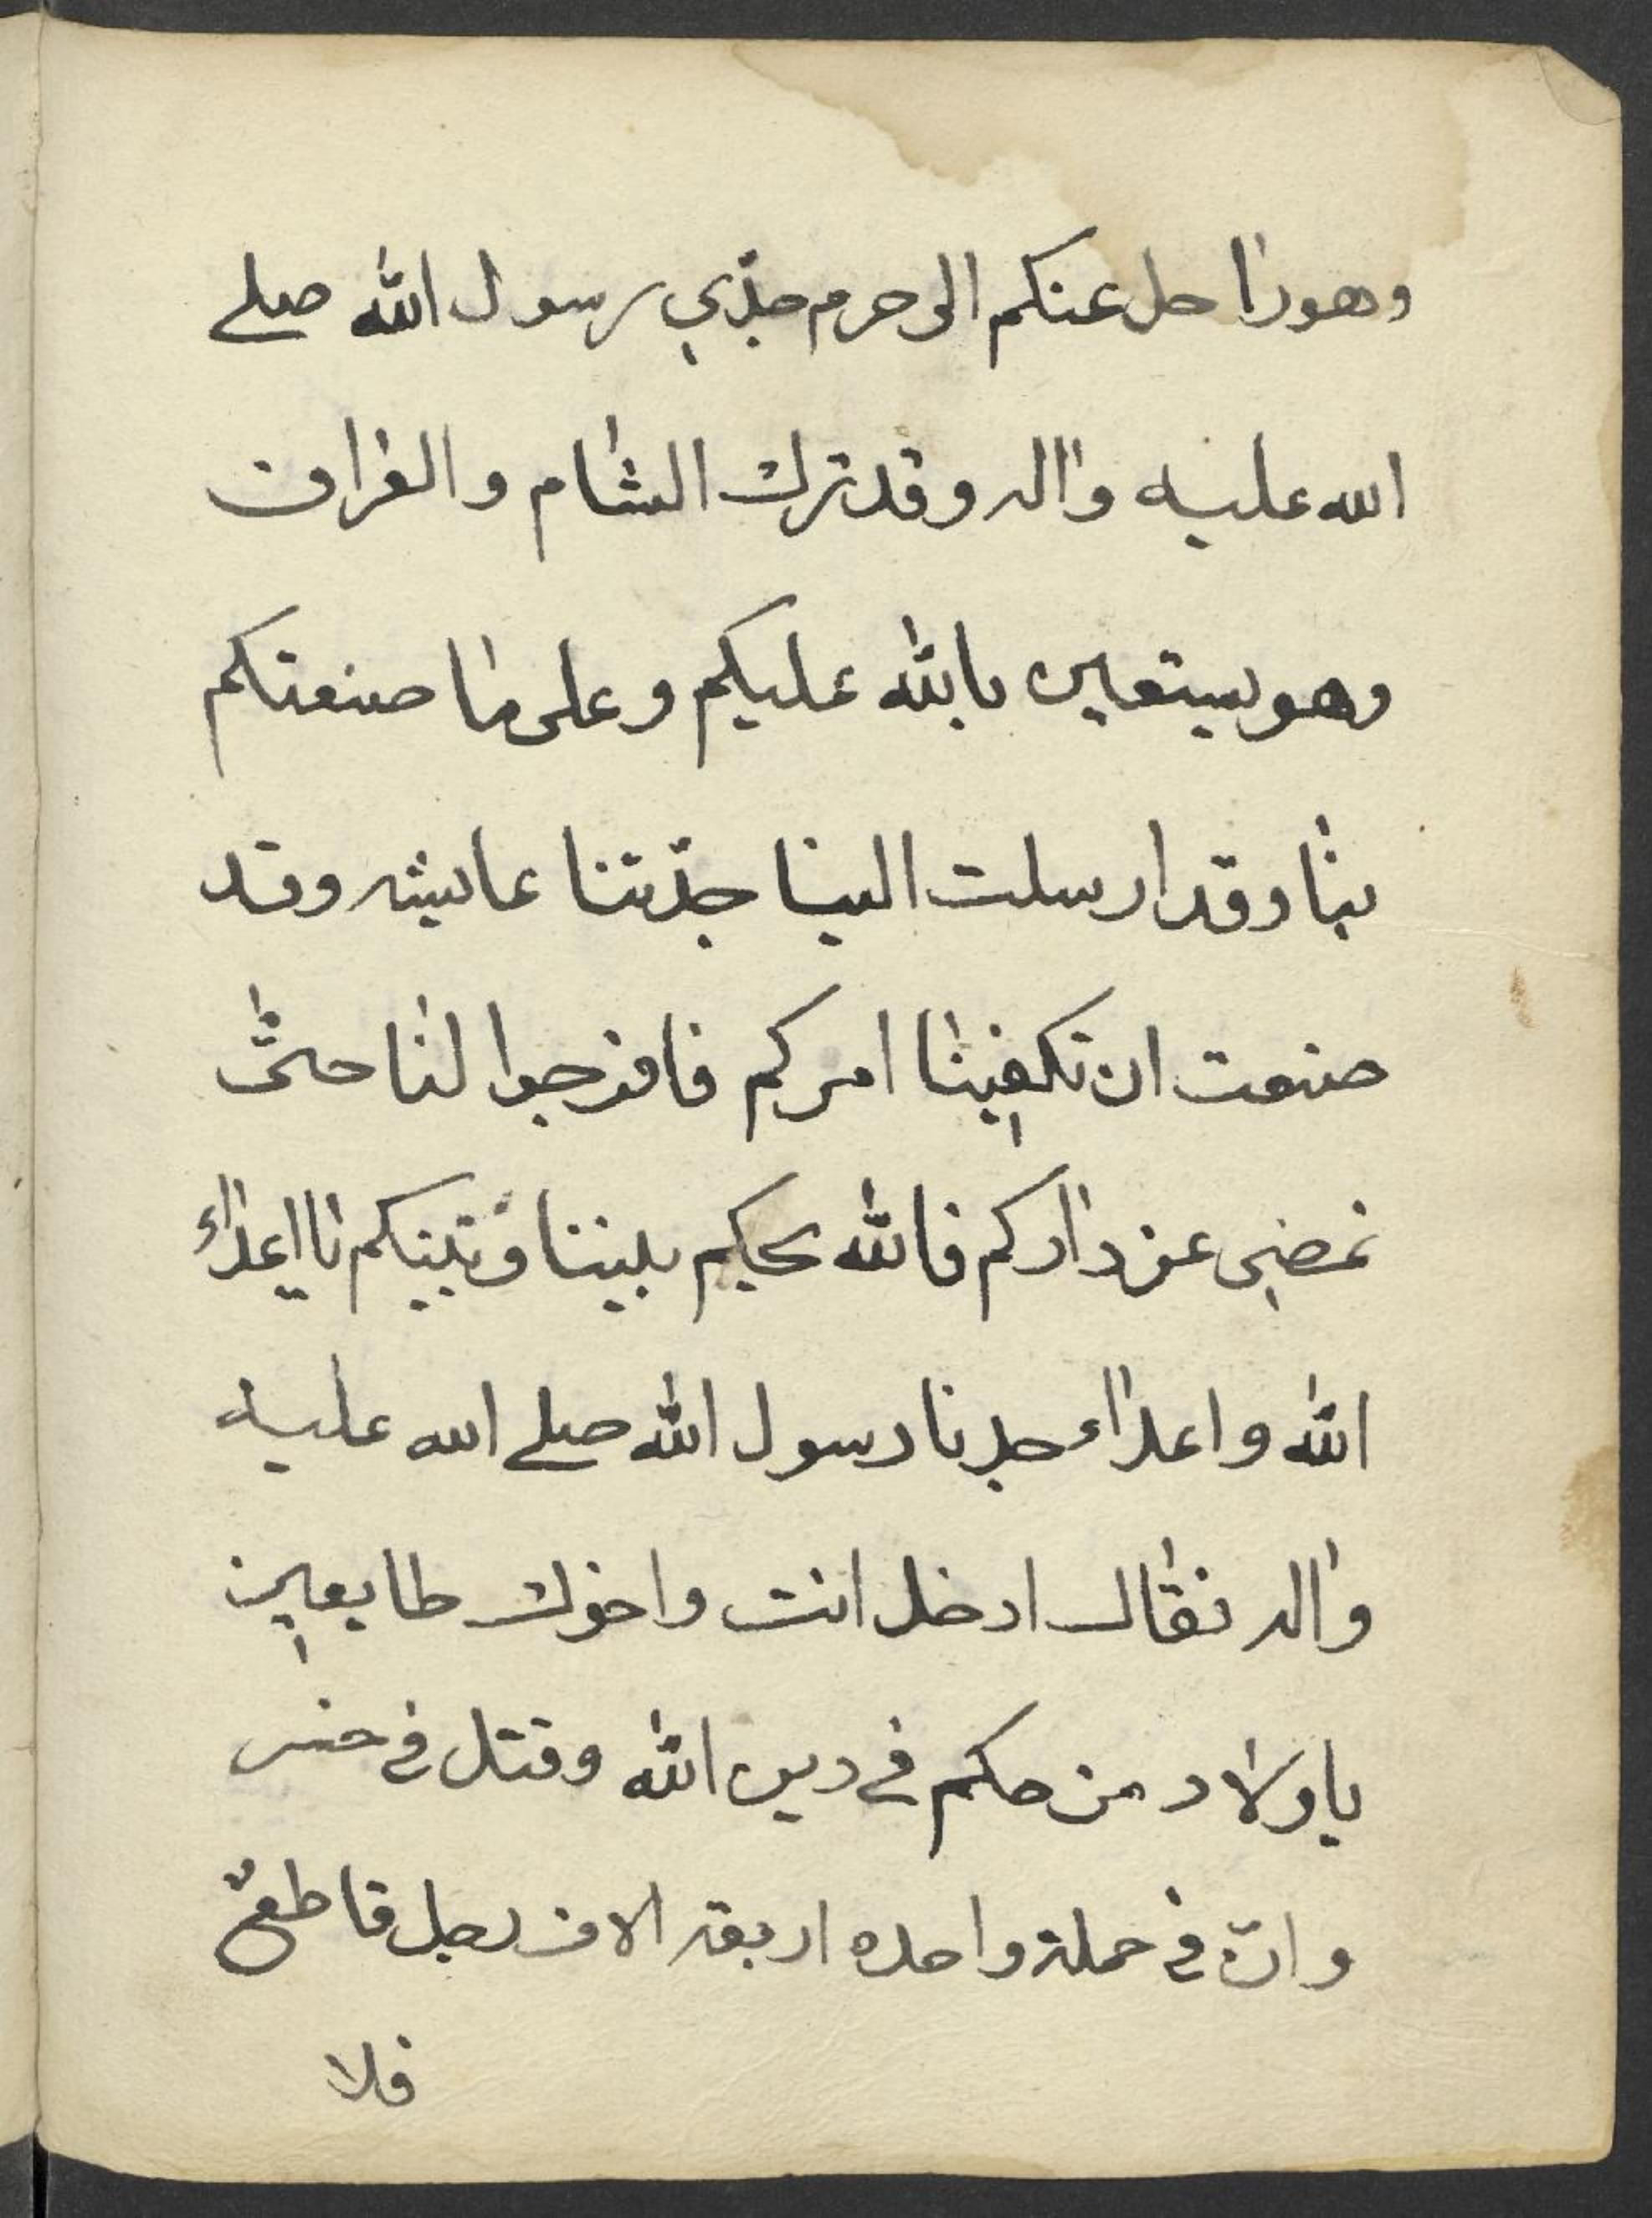 وهو راحل عنكم الى حرم جدّي رسول الله صلى
الله عليه واله وقد ترك الشام والفرات
وهو يستعين بالله عليكم وعلى ما صنعتكم
بنا وقد ارسلت الينا جدّتنا عايشه وقد
صنعت ان تكفينا امركم فافرجوا لنا حتى
نمضى عن داركم فالله يحكم بيننا وبينكم يا اعداء
الله واعداء جدنا رسول الله صلى الله عليه
واله فقال ادخل انت واخوك طايعين
يا ولاد من حكم في دين الله وقتل في
وان في حملة واحده اربعة الاف رجل قاطع
فلا